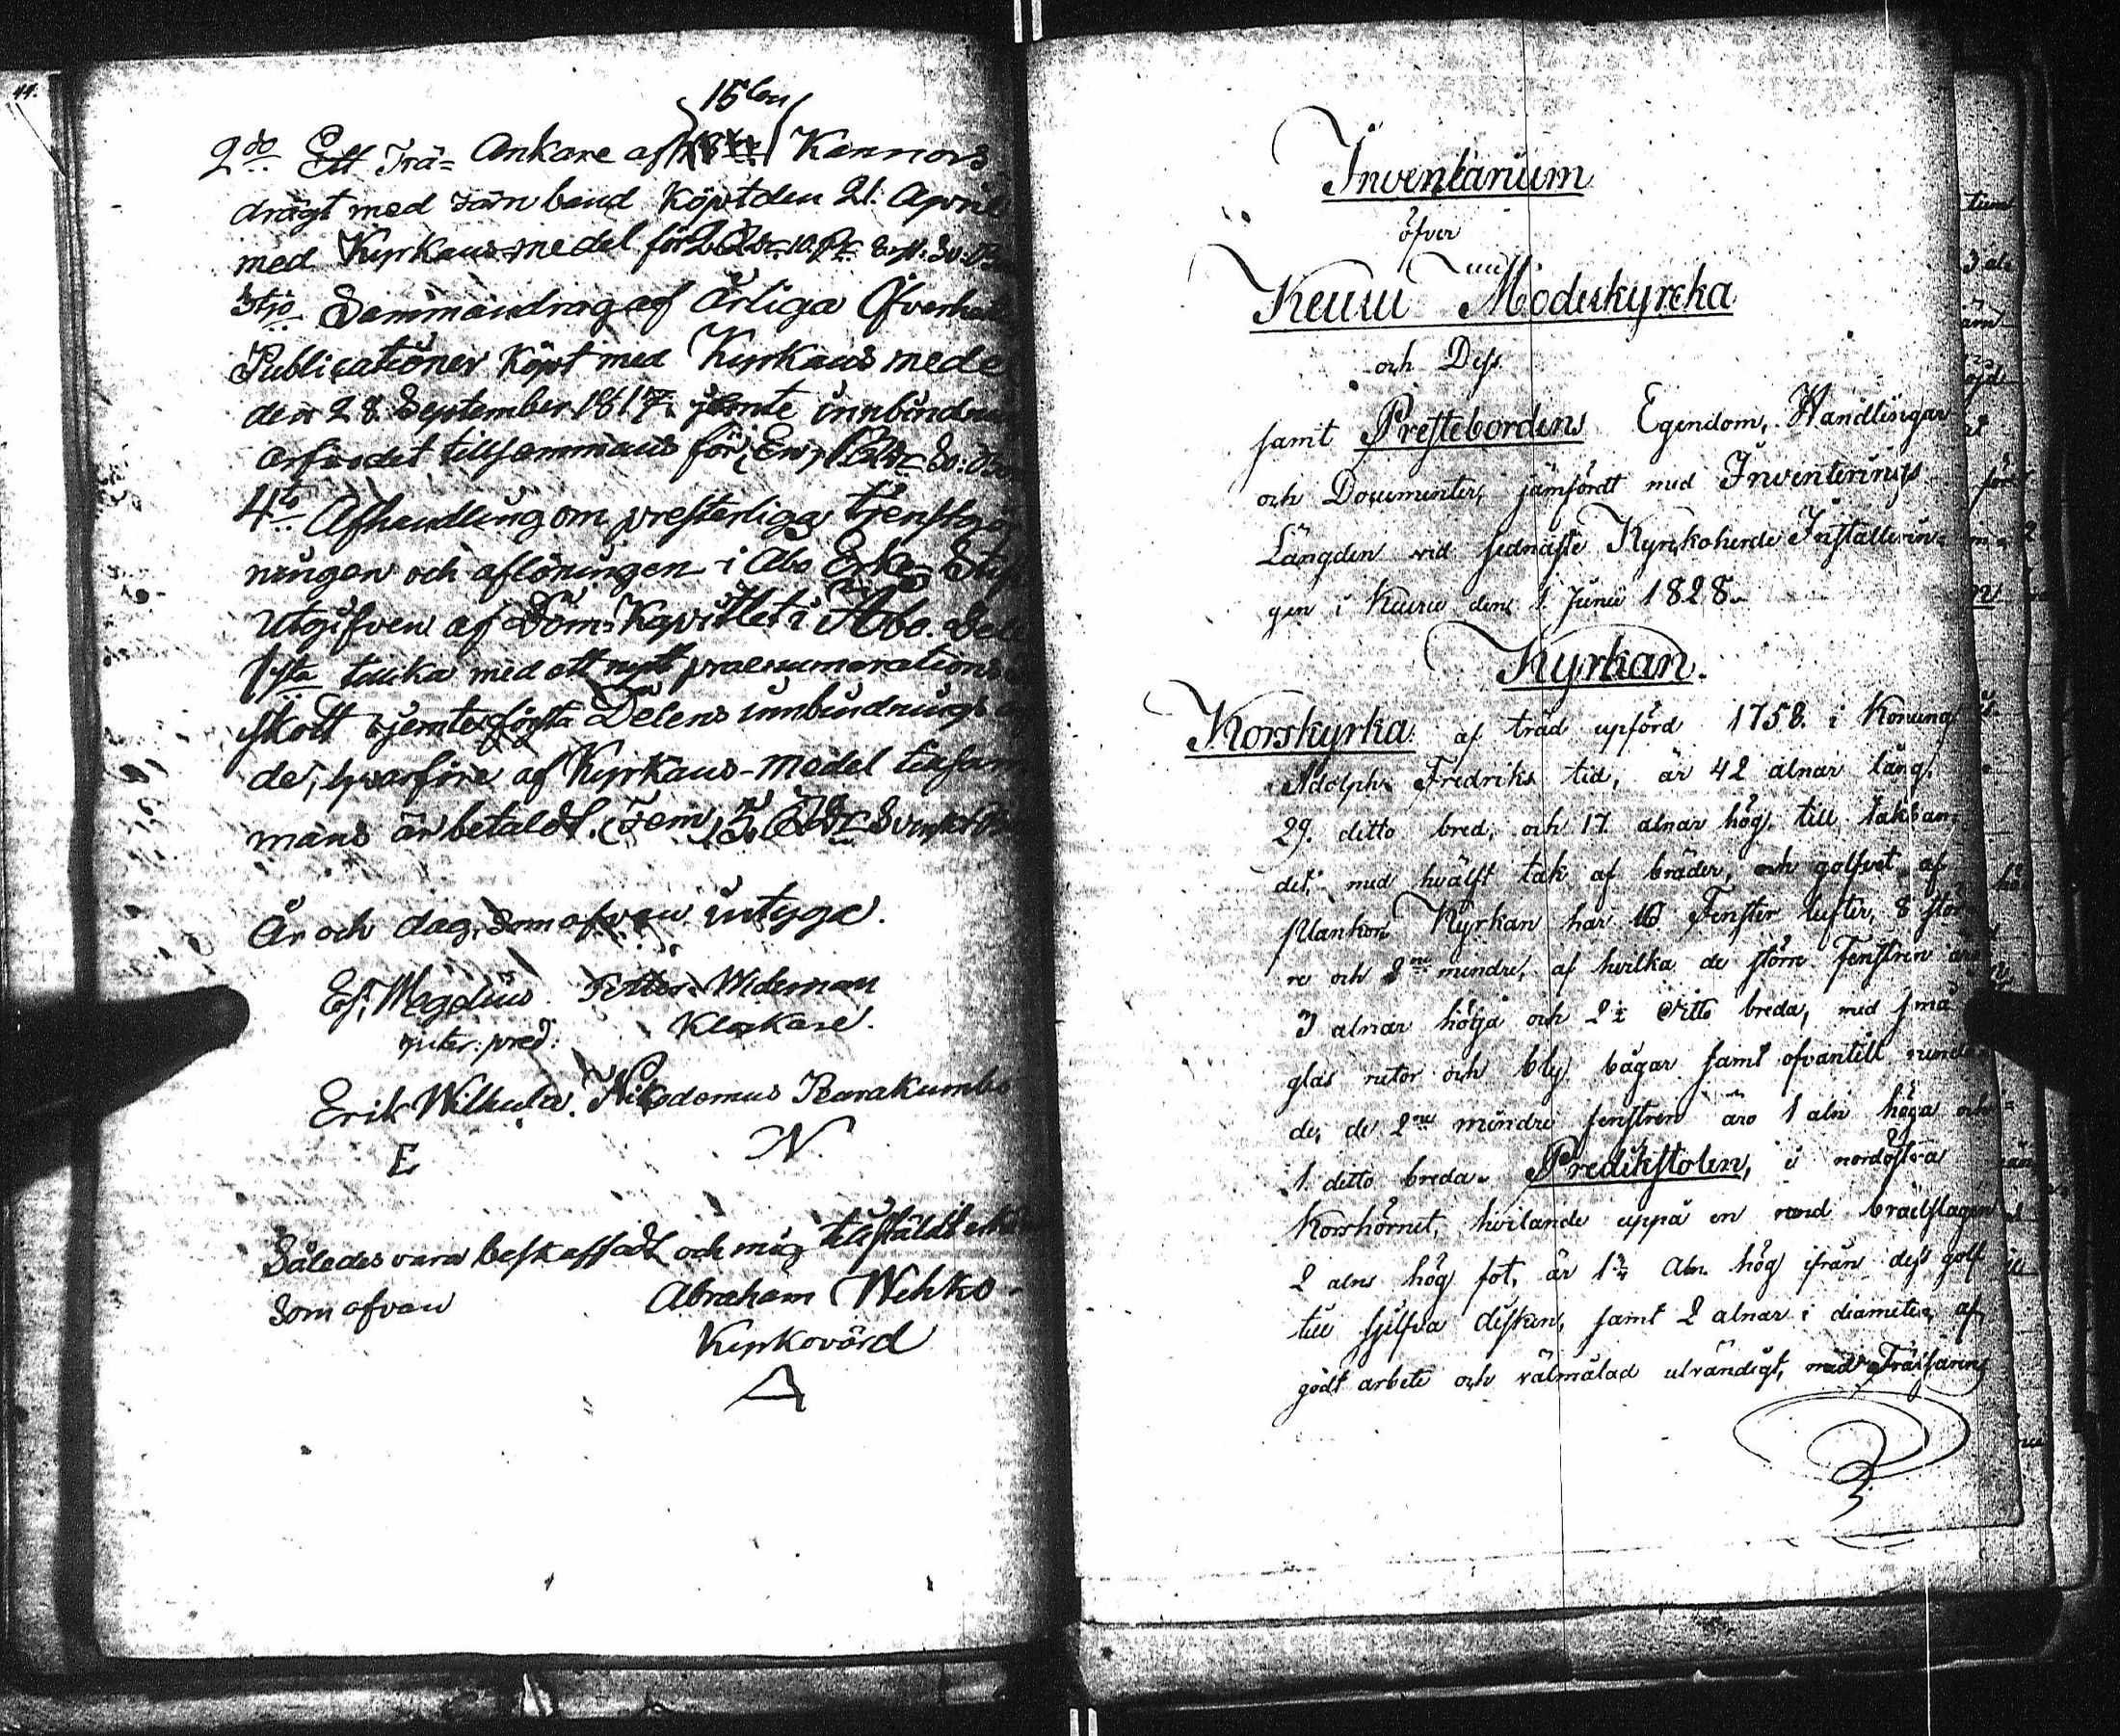 44.
15ton
2do Ett Trä- Ankare af Kannors
drägt med järn band Köpt den 21. April
med Kyrkans medel för 2 Rdr 10
3tio Sammandrag af Årliga Öfverhets
Publicationer Köpt med Kyrkans medel
den 28 September 1817 jemte innbindni
arfvodet tillsammans för, En, Rdr Sv:
4to Afhandling om presterliga tjenstgör
ningen och aflöningen i Åbo Erke Stif
utgifven af Dom-Kapitlet i Åbo. Dele
1sta täcka med ett nytt praenumerations
skott jemte första Delens innbindnings
de, hvarföre af Kyrkans-medel tilsam
mans är betaldt. Fem, 5. Rdr
År och dag, som ofvan intyga.
Petter Wideman
pred. Klockare.
Erik Wilkula. Nikodemus Karakumbu
E N
Således vara beskaffadt och mig tilstäldt
som ofvan Abraham Wehko
Kyrkovärd
A
Inventarium
öfver
Keuru Moderkyrcka
och Dess
samt Prestebordens Egendom, Handlingar
och Documenter, jämfördt med Inventerings
Längden vid sednaste Kyrkoherde Installerin-
gen i Keuru den 1 Junii 1828.
Kyrkan.
Korskyrka af träd upförd 1758. i Konung
Adolph Fredriks tid, är 42 alnar lång,
29. ditto bred, och 17. alnar hög till takban
det, med hvälft tak af bräder, och golfvet af
plankor. Kyrkan har 10 Fenster lufter, 8 stör
re och 2ne mindre, af hvilka de större Fenstren äro
3 alnar höga och 2½ ditto breda, med små
glas rutor och bly bågar samt ofvantill runda
de, de 2ne mindre fenstren äro 1 aln höga och
1 ditto breda. Predikstolen, i nordöstra
Korshörnet, hvilande uppå en rund brädslagen
2 alns hög fot, är 1¾ Aln. hög ifrån dess golf
till sjelfva disken, samt 2 alnar i diameter, af
godt arbete och välmålad utvändigt, med